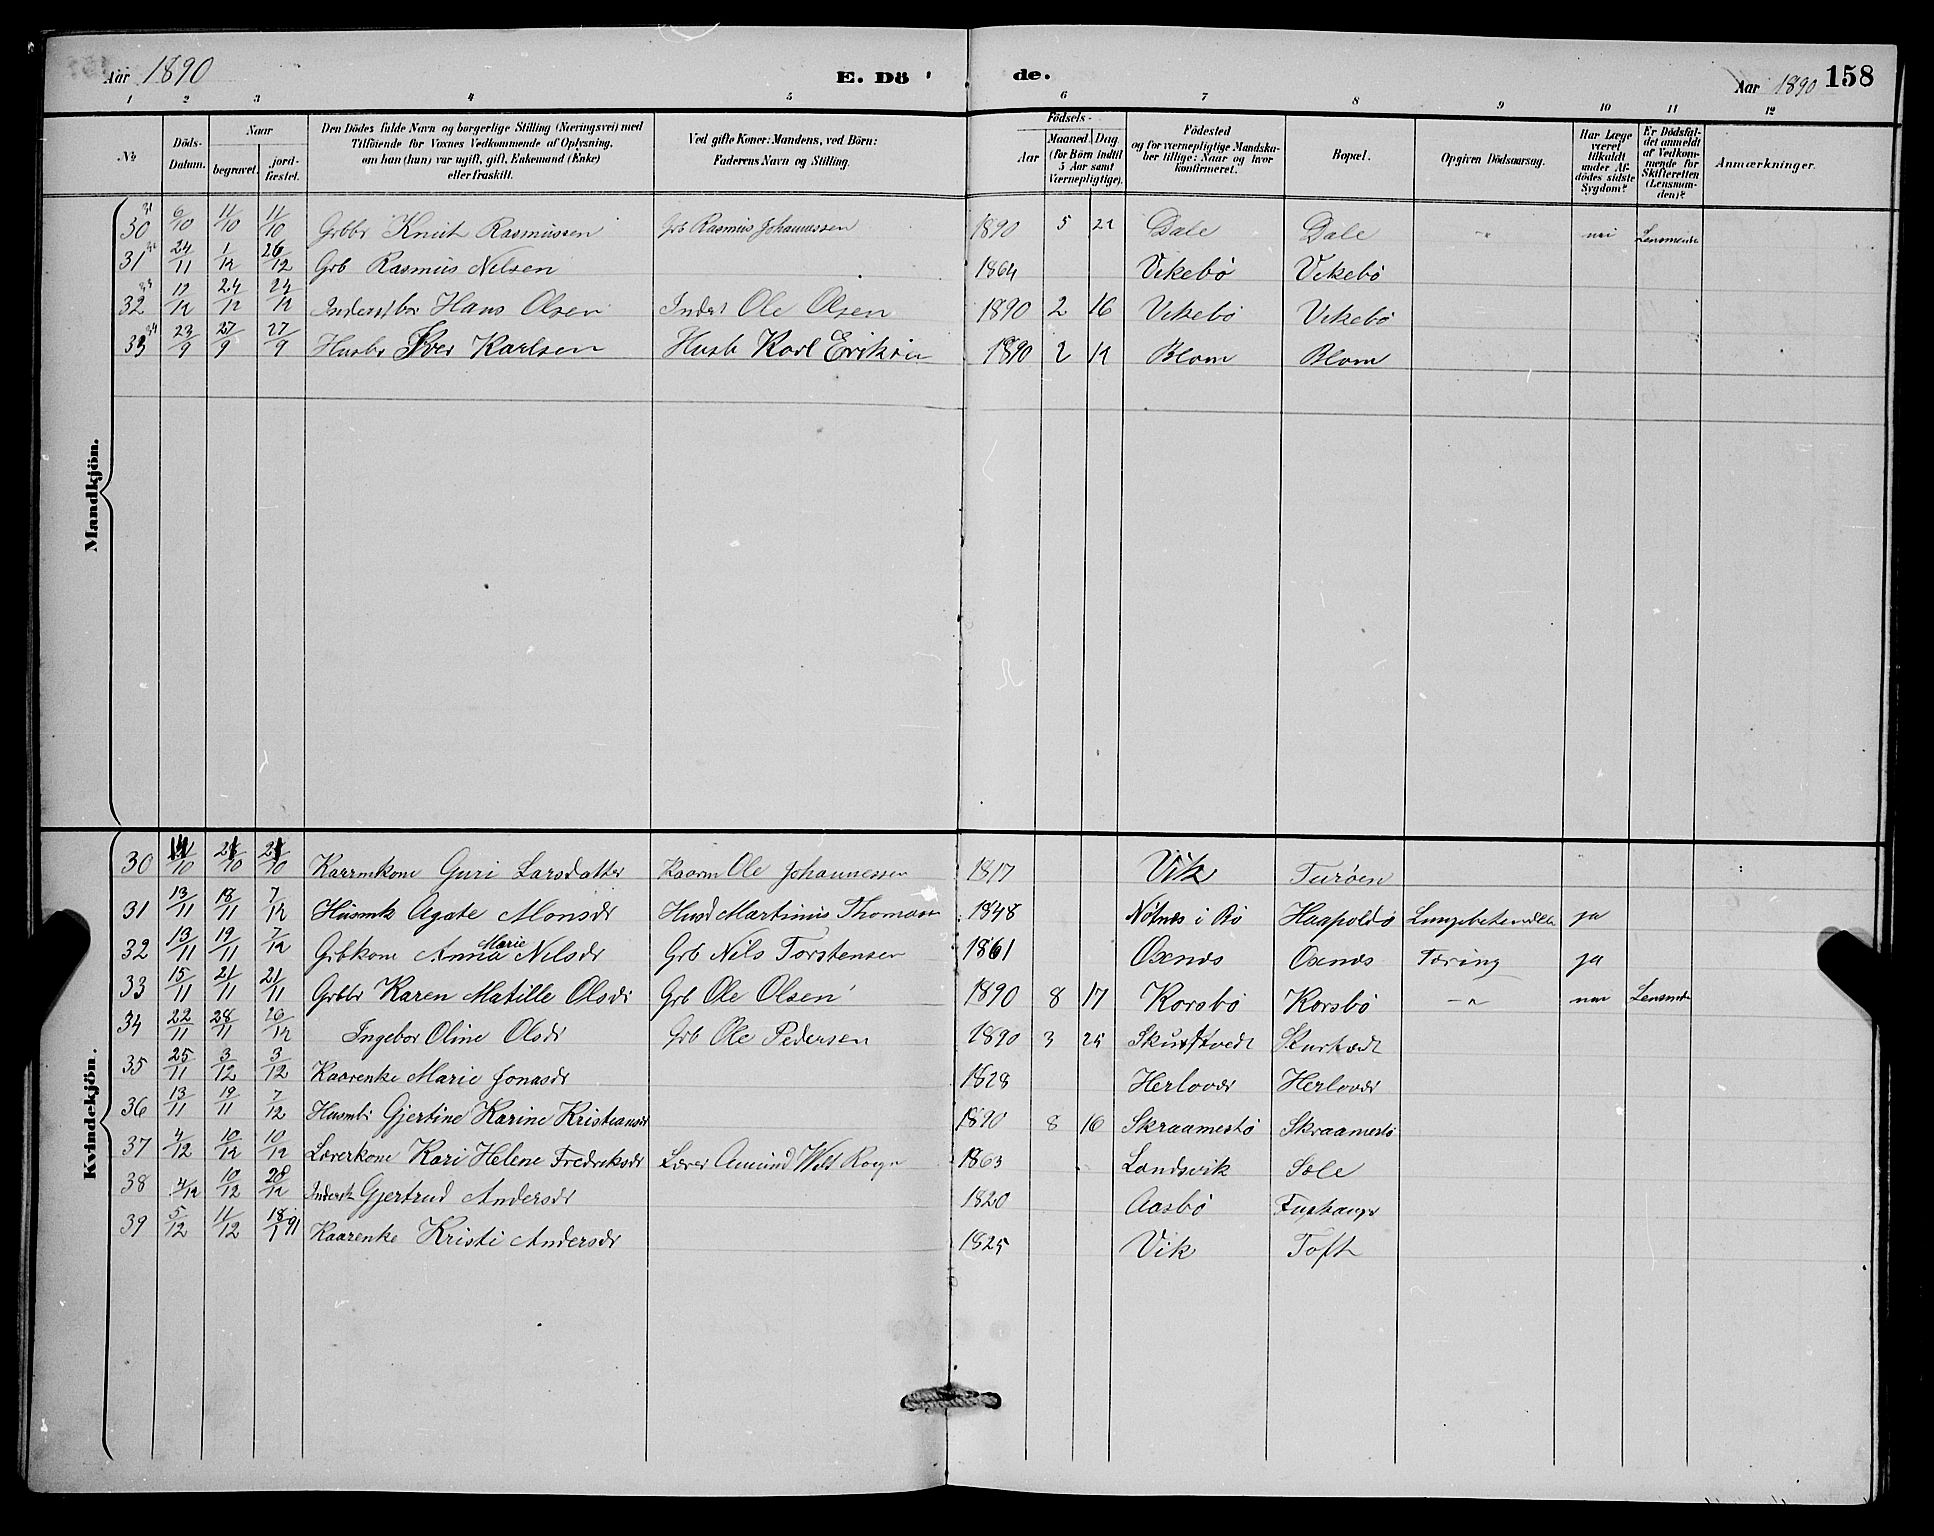 Aar 1890 E. Dö de. Aar 1890 158
1 2 3 4 5 6 7 8 9 10 11 12
No. Döds-Datum. Naar begravet. jord-fæstet. Den Dödes fulde Navn og borgerlige Stilling (Næringsvei) med Tilföiende for Voxnes Vedkommende af Oplysning, om han (hun) var ugift, gift, Enkemand (Enke) eller fraskilt. Ved gifte Koner: Mandens, ved Börn: Faderens Navn og Stilling. Födsels- Aar Maaned. Dag (for Börn indtil 5 Aar samt Værnepligtige). Födested og for værnepligtige Mandskaber tillige: Naar og hvor konfirmeret. Bopæl. Opgiven Dödsaarsag. Har Læge været tilkaldt under Afdödes sidste Sygdom? Er Dödsfaldet anmeldt af Vedkommende for Skifteretten (Lensmanden)? Anmærkninger.
Mandkjön.
30 31 6/10 11/10 11/10 Grbbr Knut Rasmussen Grb Rasmus Johannessen 1890 5 21 Dale Dale " nei Lensmende
31 32 24/11 1/12 26/12 Grb Rasmus Nilsen 1864 Vikebö Vikebö
32 33 12/12 24/12 24/12 Inderstbar Hans Olsen Inders Ole Olsen 1890 2 16 Vikebö Vikebö
33 34 23/9 27/9 27/9 Husbr Iver Karlsen Husb Karl Eriksen 1890 2 12 Blom Blom
Kvindekjön.
30 /10 /10 /10 Kaarmkone Guri Larsdatter Kaarm Ole Johannessen 1817 Vik Turöen
31 13/11 18/11 7/12 Husmk Agate Monsdr Husd Martinus Thomas 1848 Nötnes i Bö Haapoldö ja
32 13/11 19/11 7/12 Grbkone Anna Marie Nilsdr Grb Nils Torstensen 1861 Oxnes Oxnes Tæring ja
33 15/11 21/11 21/11 Grbbr Karen Matille Olsdr Grb Ole Olsen 1890 8 17 Korsbö Korsbö " nei Lensmde
34 22/11 28/11 26/12 Ingebor Oline Olsdr Grb Ole Pedersen 1890 3 25 Skurtvedt
35 25/11 3/12 3/12 Kaarenke Marie Jonasdr 1828 Herlover Herlover
36 13/11 19/11 7/12 Husmbr Gjertine Karine Kristiansdr 1890 8 16 Skraamestö Skraamestö
37 4/12 10/12 10/12 Lærerkone Kari Helene Fredriksdr Lærer Amund 1863 Landsvik Sæle
38 4/12 10/12 28/12 Inderst Gjertrud Andersdr 1820 Aasbö
39 5/12 11/12 18/1 91 Kaarenke Kristi Andersdr 1825 Vik Toft